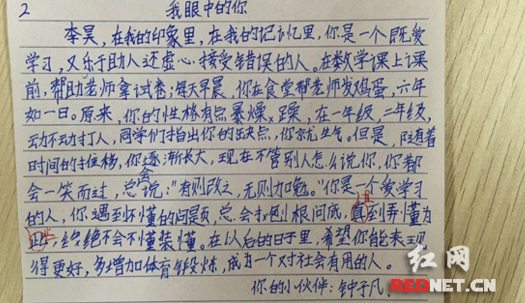 2 我眼中的你
李昊，在我的印象里，在我的记忆里，你是一个既爱
学习，又乐于助人还虚心接受错误的人。在数学课上课
前，帮助老师拿试卷；每天早晨，你在食堂帮老师发鸡蛋，六年
如一日。原来，你的性格有点暴燥，在一年级，二年级，
动不动打人，同学们指出你的缺点，你就生气。但是，随着
时间的推移，你逐渐长大，现在不管别人怎么说你，你都
会一笑而过，总会说："有则改之，无则加勉。"你是一个爱学习
的人，你遇到不懂的问题，总会打破到根问底，直到弄懂为
止，绝不会不懂装懂。在以后的日子里，希望你能表现
得更好，多增加体育锻炼，成为一个对社会有用的人。
你的小伙伴：钟子凡
红网
REDNET.CN